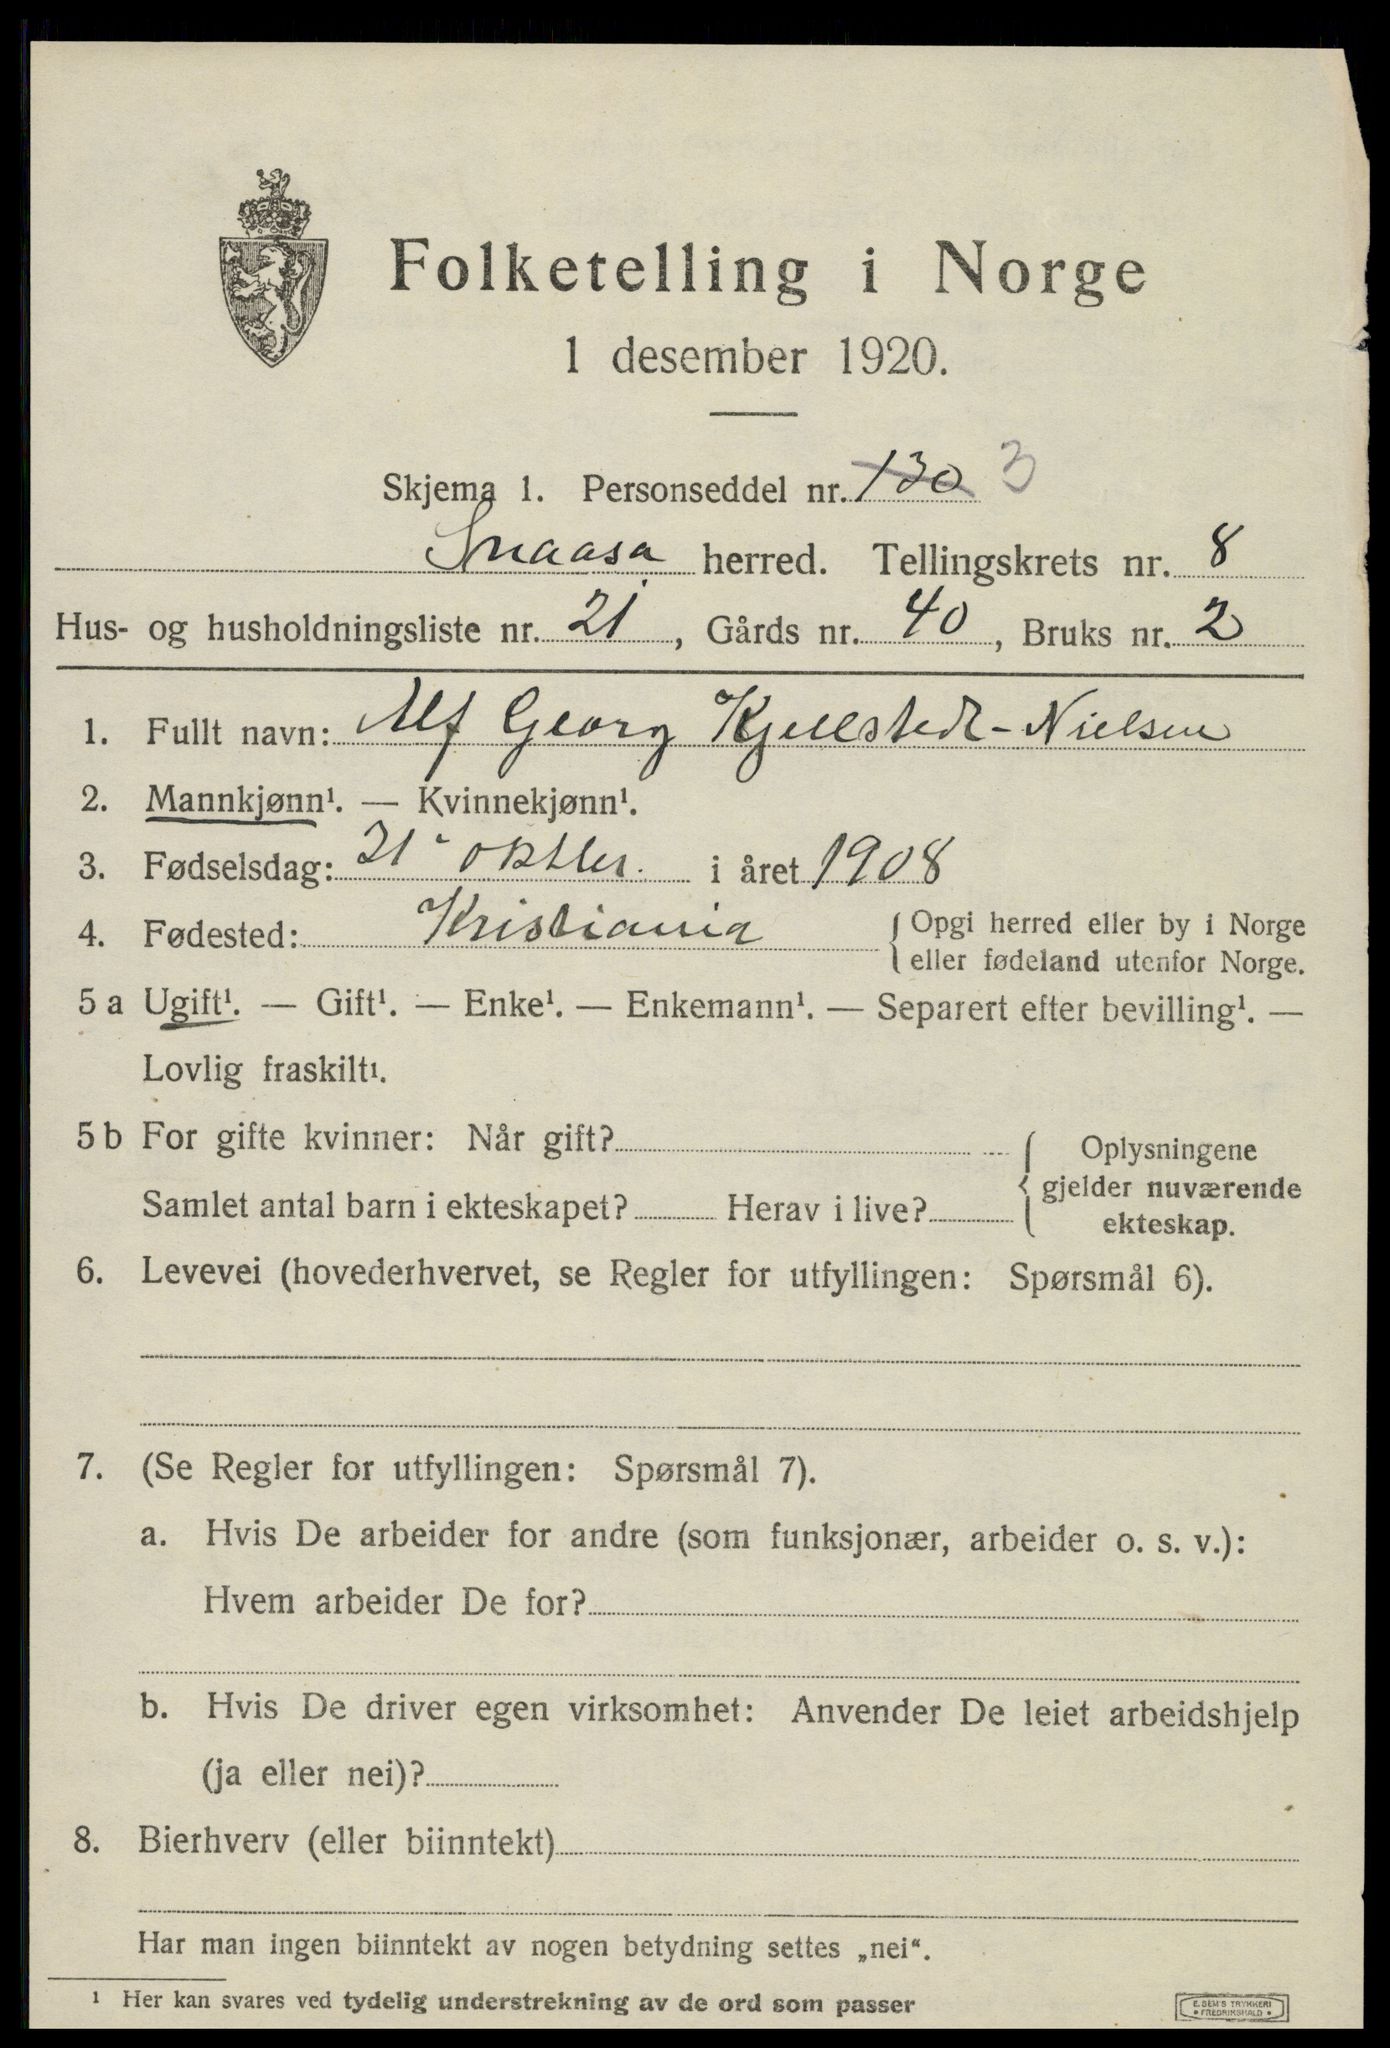 Folketelling i Norge
1 desember 1920.
Skjema 1. Personseddel nr. 130 3
Snaasa herred. Tellingskrets nr. 8
Hus- og husholdningsliste nr. 21, Gårds nr. 40, Bruks nr. 2
1. Fullt navn: Alf Georg Kjellstedt-Nielsen
2. Mannkjønn¹. — Kvinnekjønn¹.
3. Fødselsdag: 21 oktber. i året 1908
4. Fødested: Kristiania { Opgi herred eller by i Norge
eller fødeland utenfor Norge.
5 a Ugift¹. — Gift¹. — Enke¹. — Enkemann¹. — Separert efter bevilling¹. —
Lovlig fraskilt¹.
5 b For gifte kvinner: Når gift? { Oplysningene
gjelder nuværende
Samlet antal barn i ekteskapet? Herav i live? ekteskap.
6. Levevei (hovederhvervet, se Regler for utfyllingen: Spørsmål 6).
7. (Se Regler for utfyllingen: Spørsmål 7).
a. Hvis De arbeider for andre (som funksjonær, arbeider o. s. v.):
Hvem arbeider De for?
b. Hvis De driver egen virksomhet: Anvender De leiet arbeidshjelp
(ja eller nei)?
8. Bierhverv (eller biinntekt)
Har man ingen biinntekt av nogen betydning settes „nei“.
¹ Her kan svares ved tydelig understrekning av de ord som passer
E. SEM'S TRYKKERI
• FREDRIKSHALD •